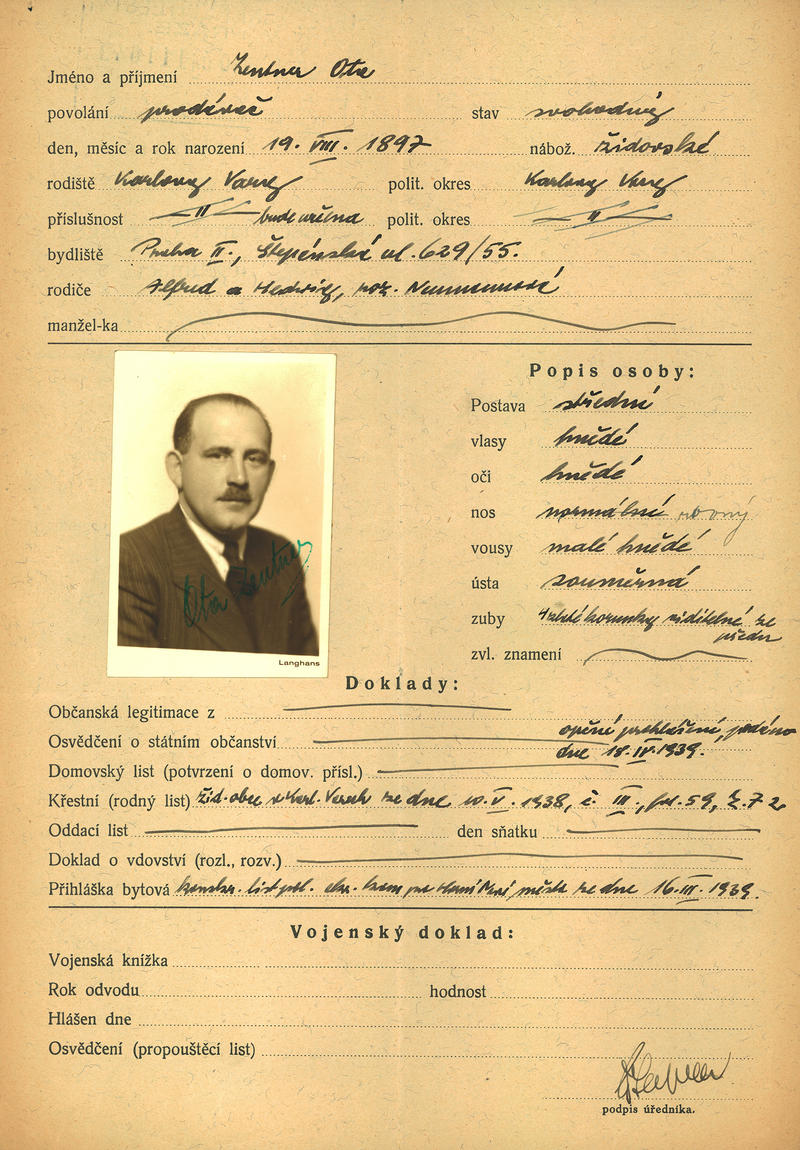 Jméno a příjmení Zentner Ota
povolání prodavač stav svobodný
den, měsíc a rok narození 19. VIII. 1897 nábož. židovské
rodiště Karlovy Vary polit. okres Karlovy Vary
příslušnost —"— bude určena polit. okres —"—
bydliště Praha II., Štěpánská ul. 629/55.
rodiče Alfred a Hedwig, roz. Neumannová
manžel-ka
Popis osoby:
Postava střední
vlasy hnědé
oči hnědé
nos normální rovný
vousy malé hnědé
ústa souměrná
zuby zlaté korunky viditelné ze
předu
zvl. znamení
Ota Zentner
Langhans
Doklady:
Občanská legitimace z
Osvědčení o státním občanství opční prohlášení, podáno
dne 18. IV. 1939.
Domovský list (potvrzení o domov. přísl.)
Křestní (rodný list) žid. obce v Karl. Varech ze dne 10. V. 1938, č. III., fol. 59, č. 72
Oddací list den sňatku
Doklad o vdovství (rozl., rozv.)
Přihláška bytová konskr. list pol. města ze dne 16. III. 1939.
Vojenský doklad:
Vojenská knížka
Rok odvodu hodnost
Hlášen dne
Osvědčení (propouštěcí list)
podpis úředníka.